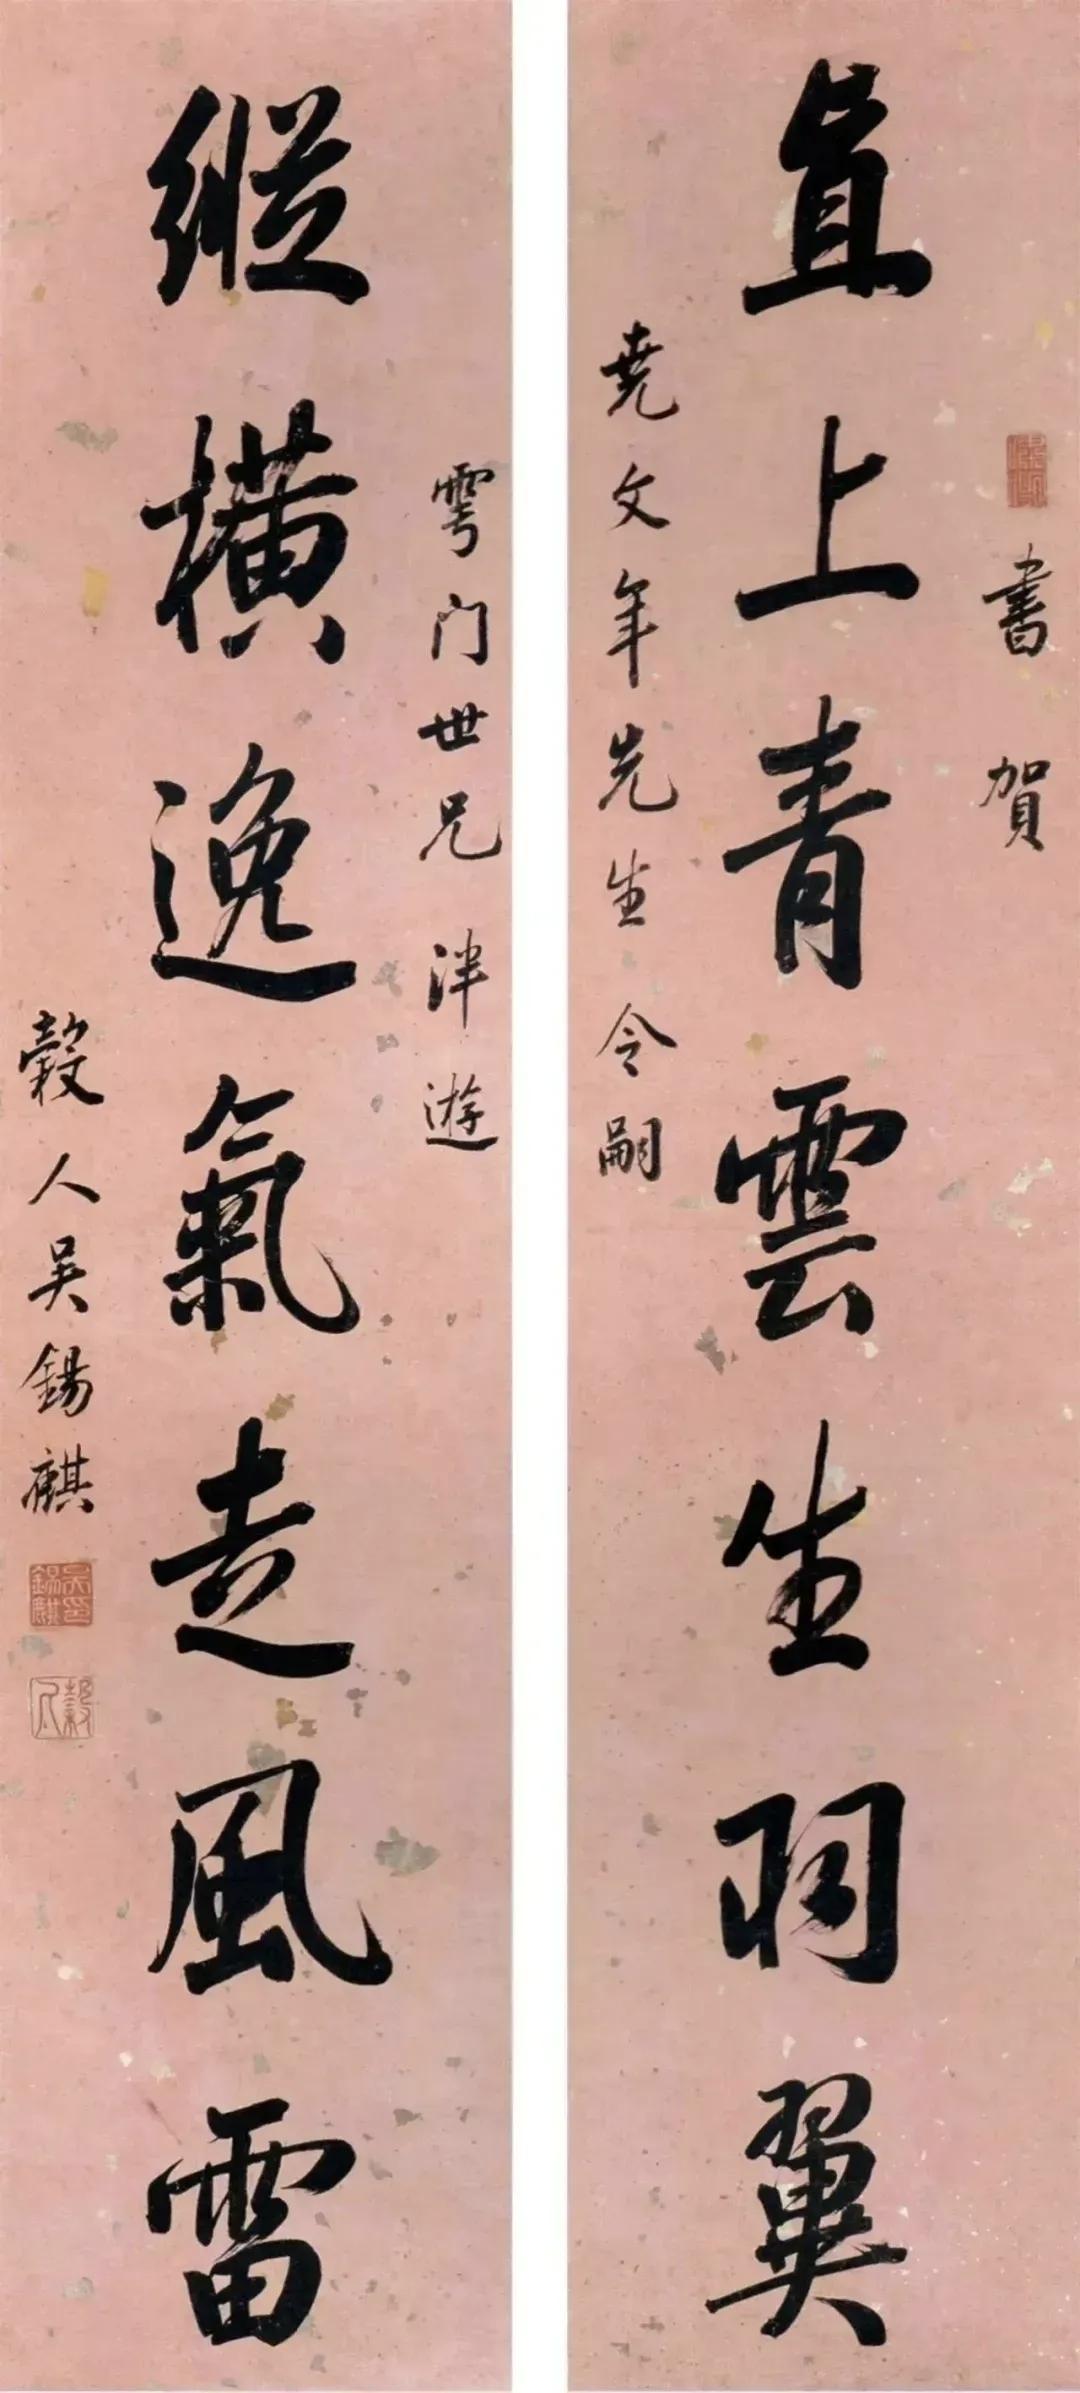 直上青雲生羽翼
書賀
堯文年先生令嗣
雩门世兄泮遊
縱橫逸氣走風雷
穀人吴錫麒
吳錫麒印
穀人